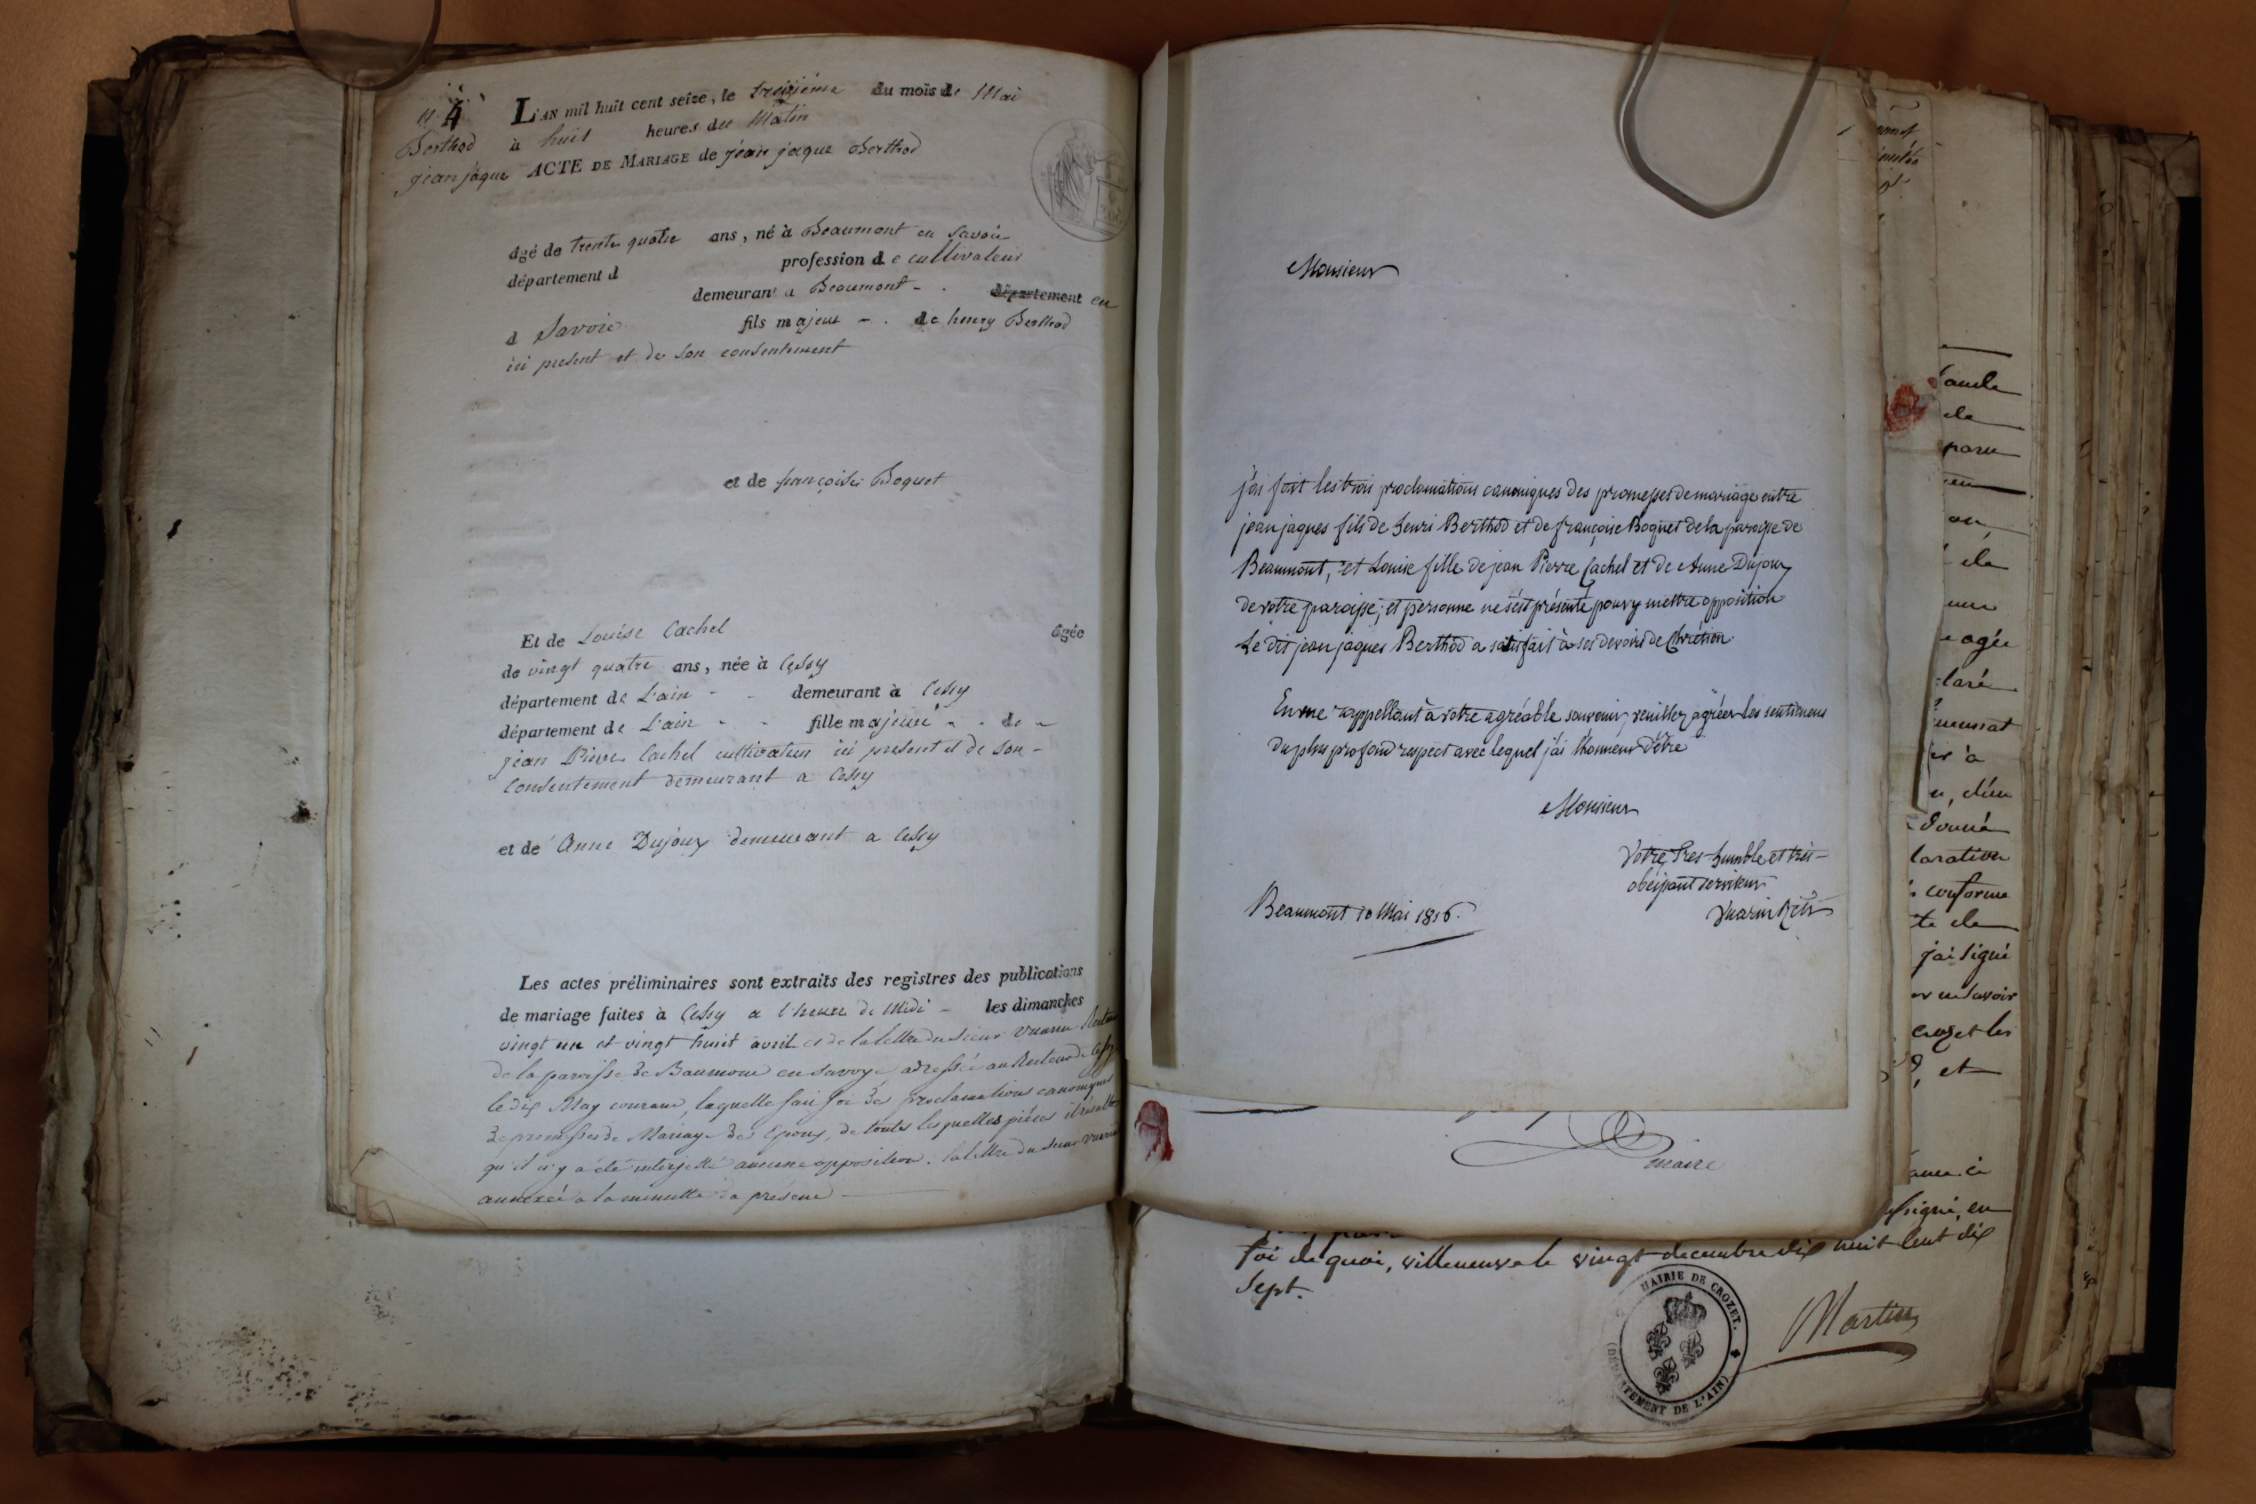 N 4
Berthod
jean jaque
L'AN mil huit cent seize, le treizième du mois de Mai
à huit heures du Matin
ACTE DE MARIAGE de jean jaque Berthod
âgé de trente quatre ans, né à Beaumont en Savoie
département d profession de cultivateur
demeurant a Beaumont - . département en
d Savoie fils majeur - . de henry Berthod
ici present et de son consentement
et de françoise Boquet
Et de Louise Cachel âgée
de vingt quatre ans, née à Cessy
département de L'ain - - demeurant à Cessy
département de L'ain - - fille majeure - . de -
jean Pierre Cachel cultivateur ici present et de son -
consentement demeurant a Cessy
et de Anne Dujoux demeurant a Cessy
Les actes préliminaires sont extraits des registres des publications
de mariage faites à Cessy a l'heure de Midi - les dimanches
vingt un et vingt huit avril et de la lettre du sieur Vuarin Recteur
de la paroisse de Baumont en Savoye adressée au Recteur de Cessy
le dix May courant, laquelle fait foi des proclamations canoniques
de promesses de Mariage des Epoux, de toutes lesquelles pièces il résulte
qu'il n'y a été interjetté aucune opposition. la lettre du sieur Vuarin
annexée a la minutte du présent
Monsieur
j'ai fait les trois proclamations canoniques des promesses de mariage entre
jean jaques fils de henri Berthod et de françoise Boquet de la paroisse de
Beaumont, et Louise fille de jean Pierre Cachel et de Anne Dujoux
de votre paroisse; et personne ne s'est présenté pour y mettre opposition
Le dit jean jaques Berthod a satisfait à ses devoirs de Chrétien.
En me rappellant à votre agréable souvenir, veuillez agréer les sentiments
du plus profond respect avec lequel j'ai l'honneur d'être
Monsieur
Votre très humble et très-
obéissant serviteur
Vuarin Rstr
Beaumont 10 Mai 1816.
maire
foi de quoi, villeneuve le vingt decembre dix huit cent dix
sept.
MAIRIE DE CROZET.
(DÉPARTEMENT DE L'AIN)
Martin
de
paru
en
ou
de
agée
laré
er à
donné
laration
conforme
te de
j'ai signé
er en Savoir
crozet les
, et
signé, en